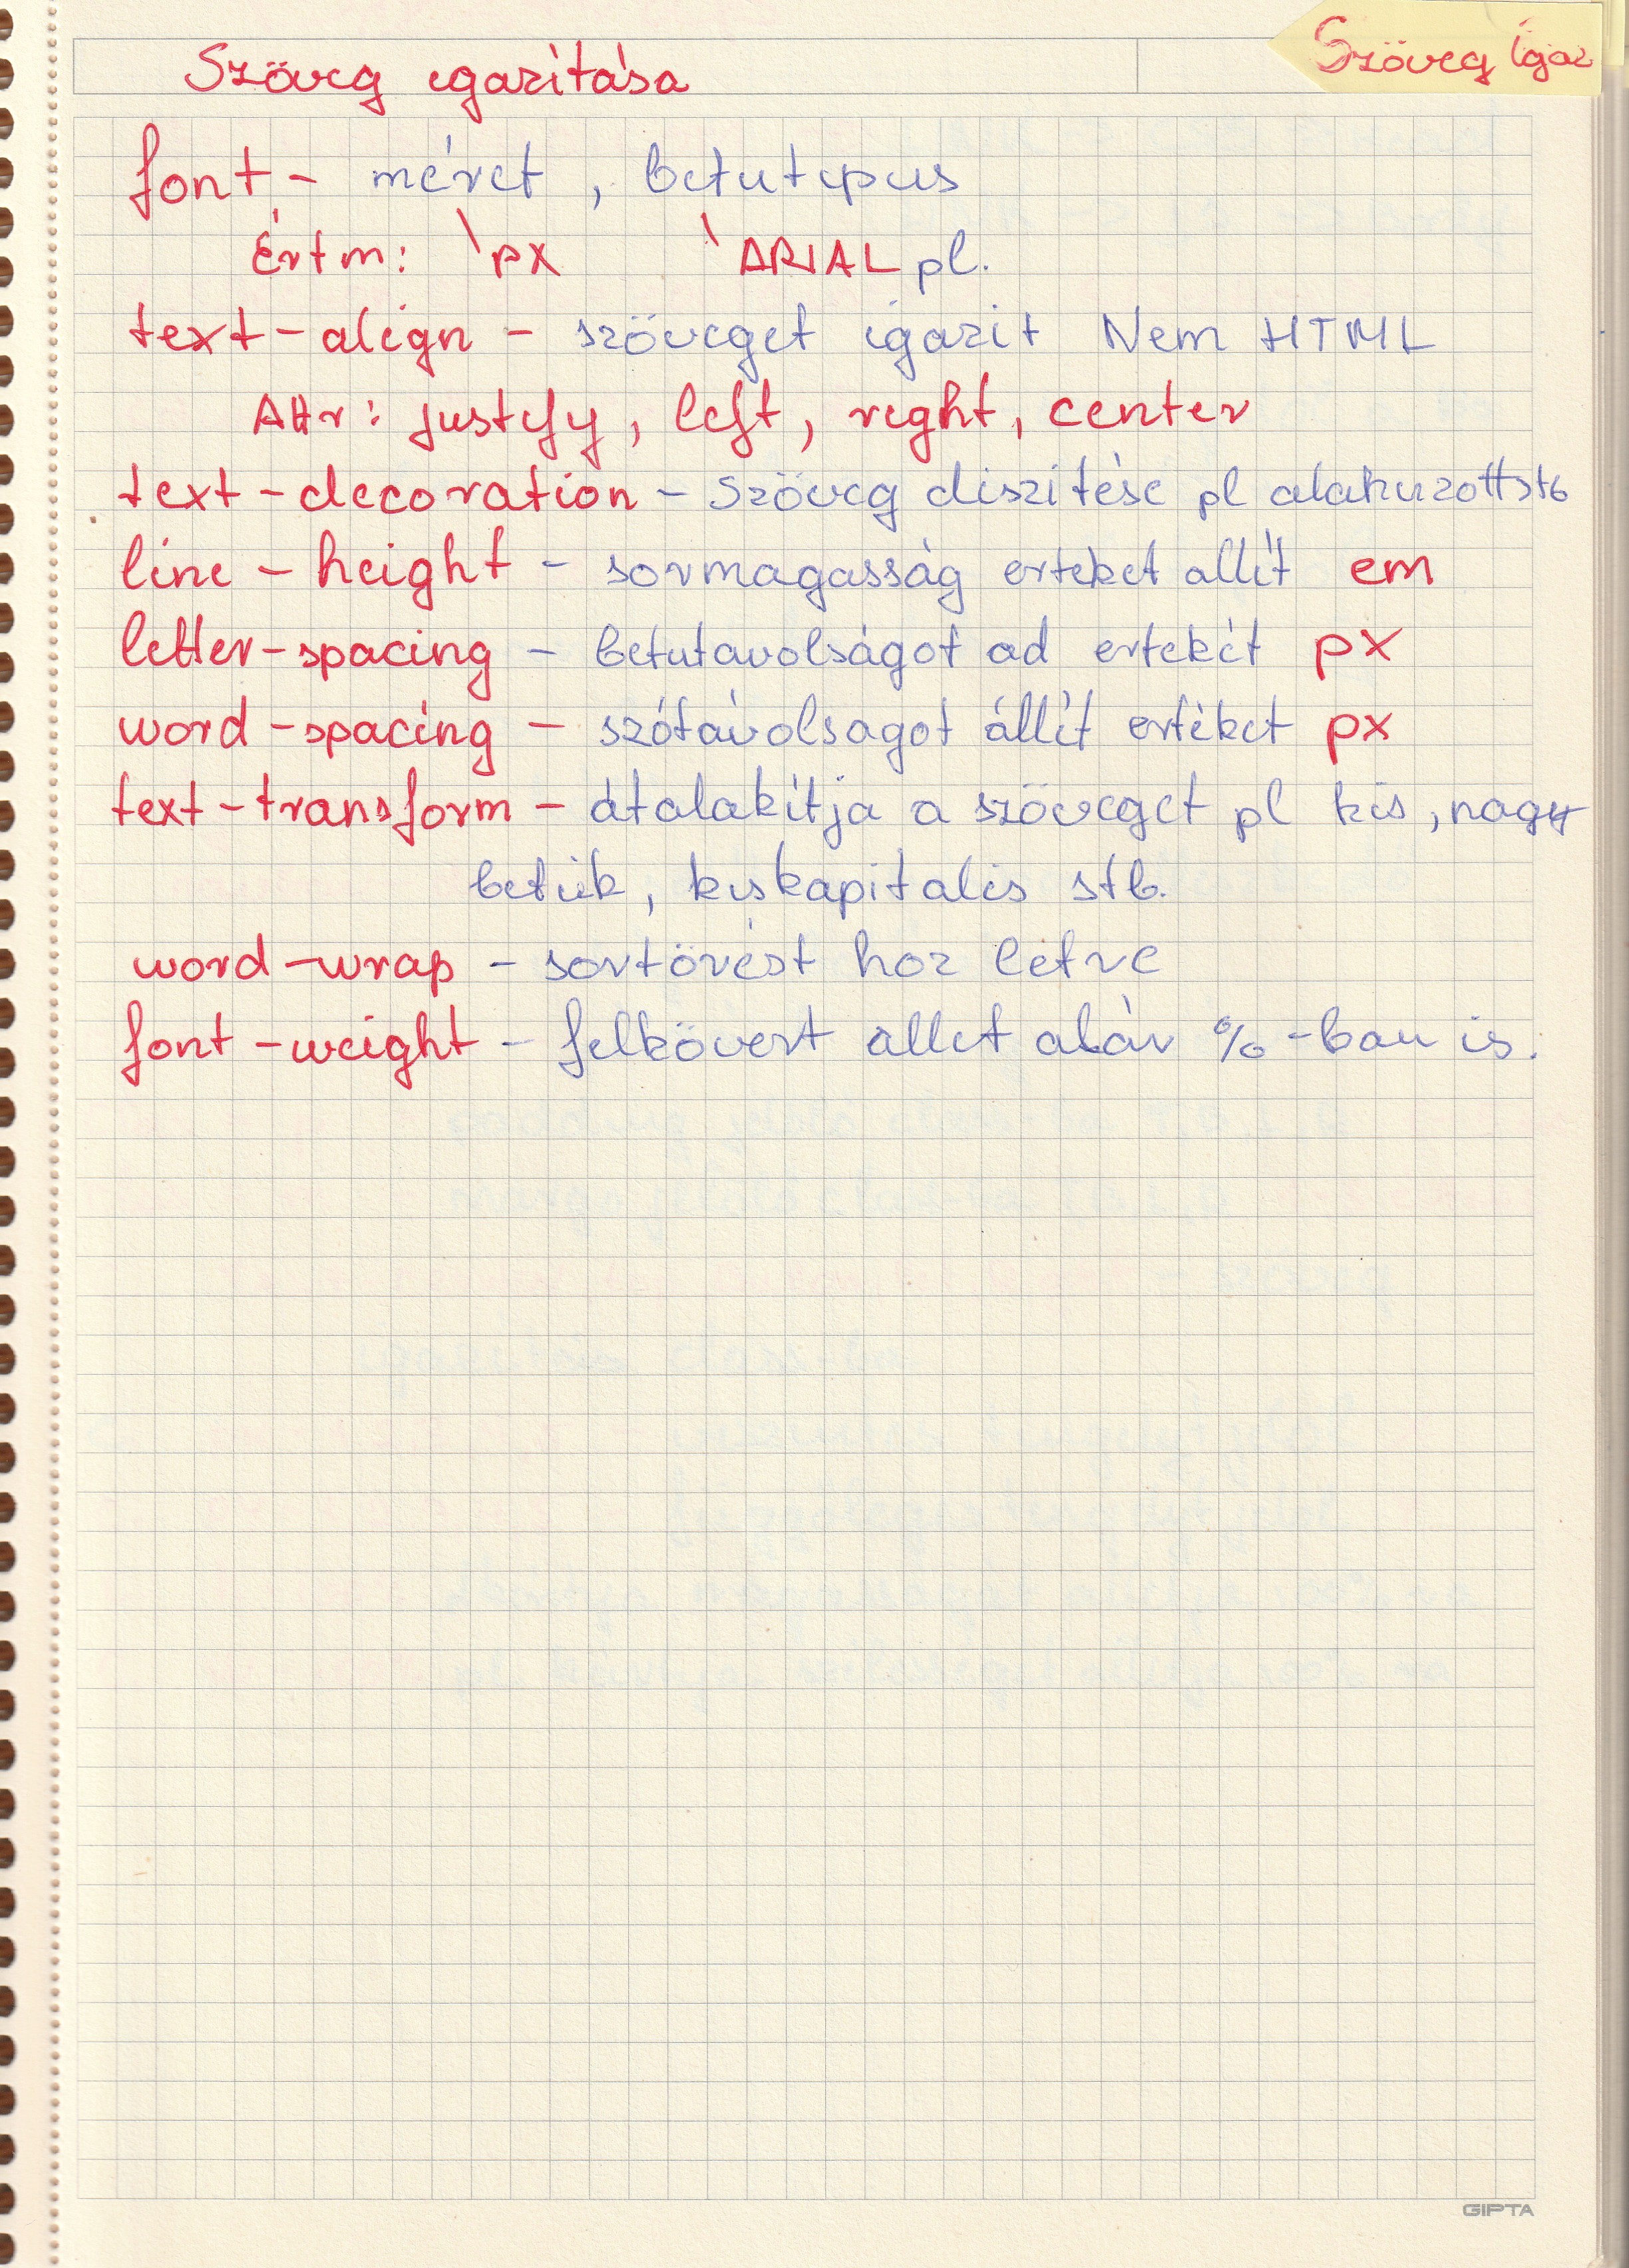 Szöveg igaz
Szöveg igazitása
font - méret , betutipus
Értm: px ARIAL pl.
text-align - szöveget igazit Nem HTML
Attr: justify, left, right, center
text-decoration - Szöveg díszitése pl alahuzott stb
line-height - sormagasság erteket allít em
letter-spacing - betutavolságot ad ertekét px
word-spacing - szótávolsagot állít ertéket px
text-transform - átalakítja a szöveget pl kis, nagy
betük, kiskapitalis stb.
word-wrap - sortörést hoz letre
font-weight - felkövert allet akár %-ban is.
GIPTA